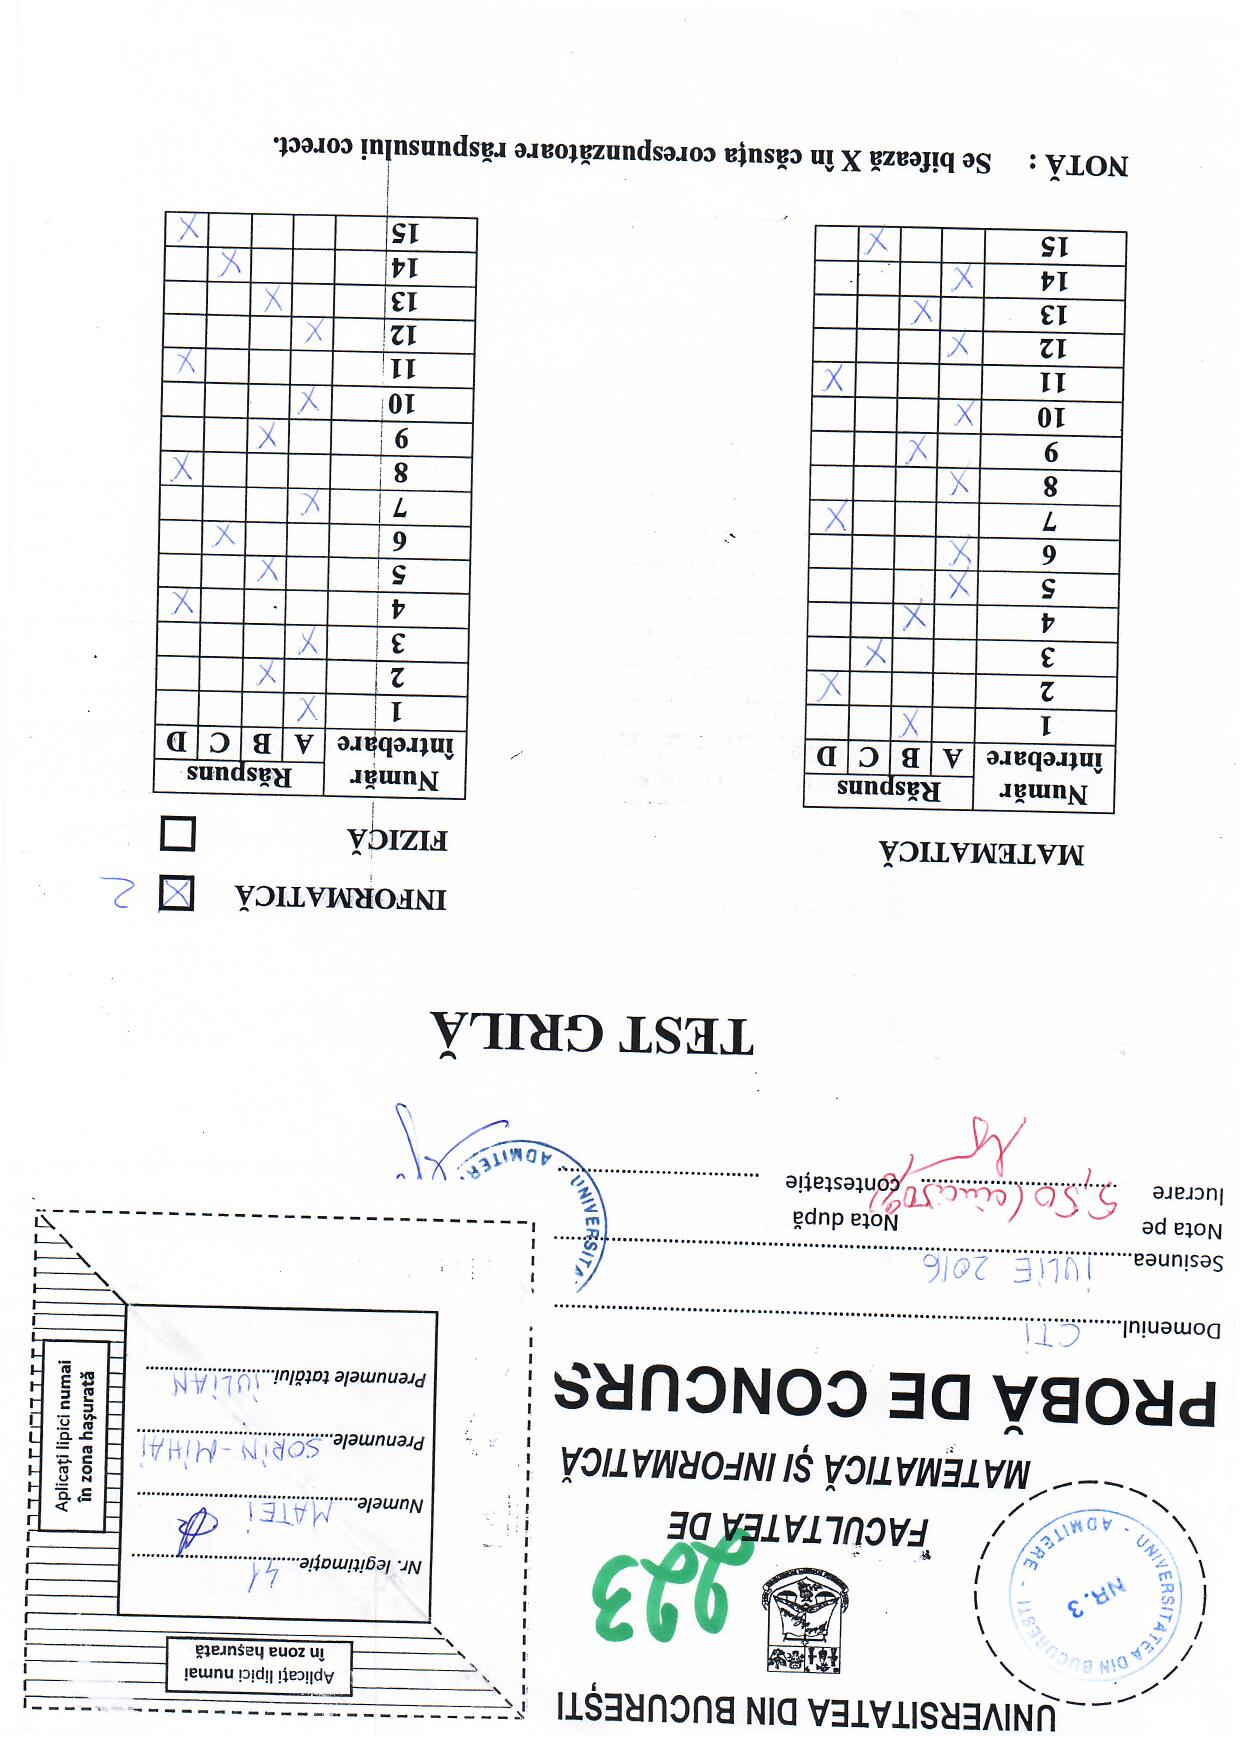 UNIVERSITATEA DIN BUCUREȘTI
FACULTATEA DE
MATEMATICĂ ȘI INFORMATICĂ
223
UNIVERSITATEA DIN BUCUREȘTI - ADMITERE -
NR. 3
PROBĂ DE CONCURS
Domeniul CTI
Sesiunea IULIE 2016
Nota pe lucrare 5,50 (cinci 50%)
Nota după contestație
Aplicați lipici numai în zona hașurată
Nr. legitimație 41
Numele MATEI
Prenumele SORIN-MIHAI
Prenumele tatălui IULIAN
Aplicați lipici numai
în zona hașurată
UNIVERSITA
ADMITER
TEST GRILĂ
MATEMATICĂ
Număr întrebare Răspuns
A B C D
1 X
2 X
3 X
4 X
5 X
6 X
7 X
8 X
9 X
10 X
11 X
12 X
13 X
14 X
15 X
INFORMATICĂ X 2
FIZICĂ
Număr întrebare Răspuns
A B C D
1 X
2 X
3 X
4 X
5 X
6 X
7 X
8 X
9 X
10 X
11 X
12 X
13 X
14 X
15 X
NOTĂ : Se bifează X în căsuța corespunzătoare răspunsului corect.